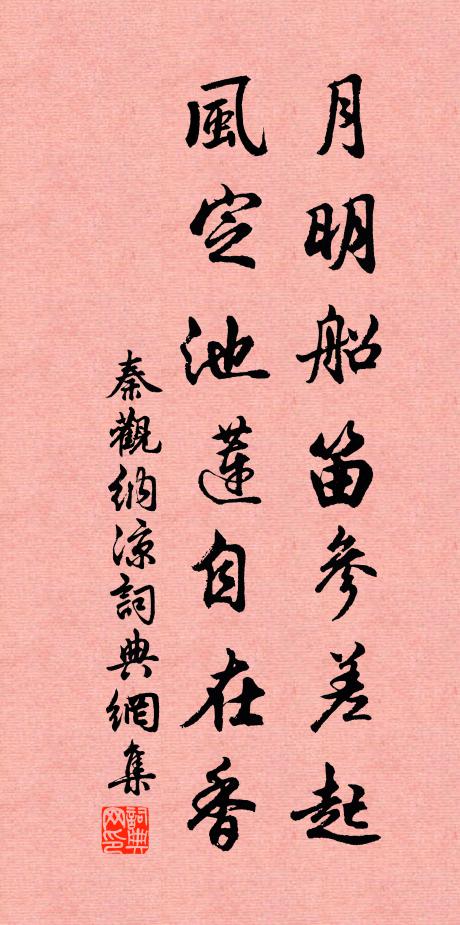 月明船笛參差起
風定池蓮自在香
秦觀納涼詞典網集
詞典网印